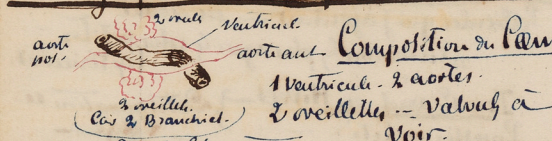 2 oreill.
ventricul.
aorte
post.
aorte ant.
2 oreillettes
(Car 2 Branchies.
Composition du Cœur
1 ventricule. 2 aortes.
2 oreillettes -- Valvules à
voir.